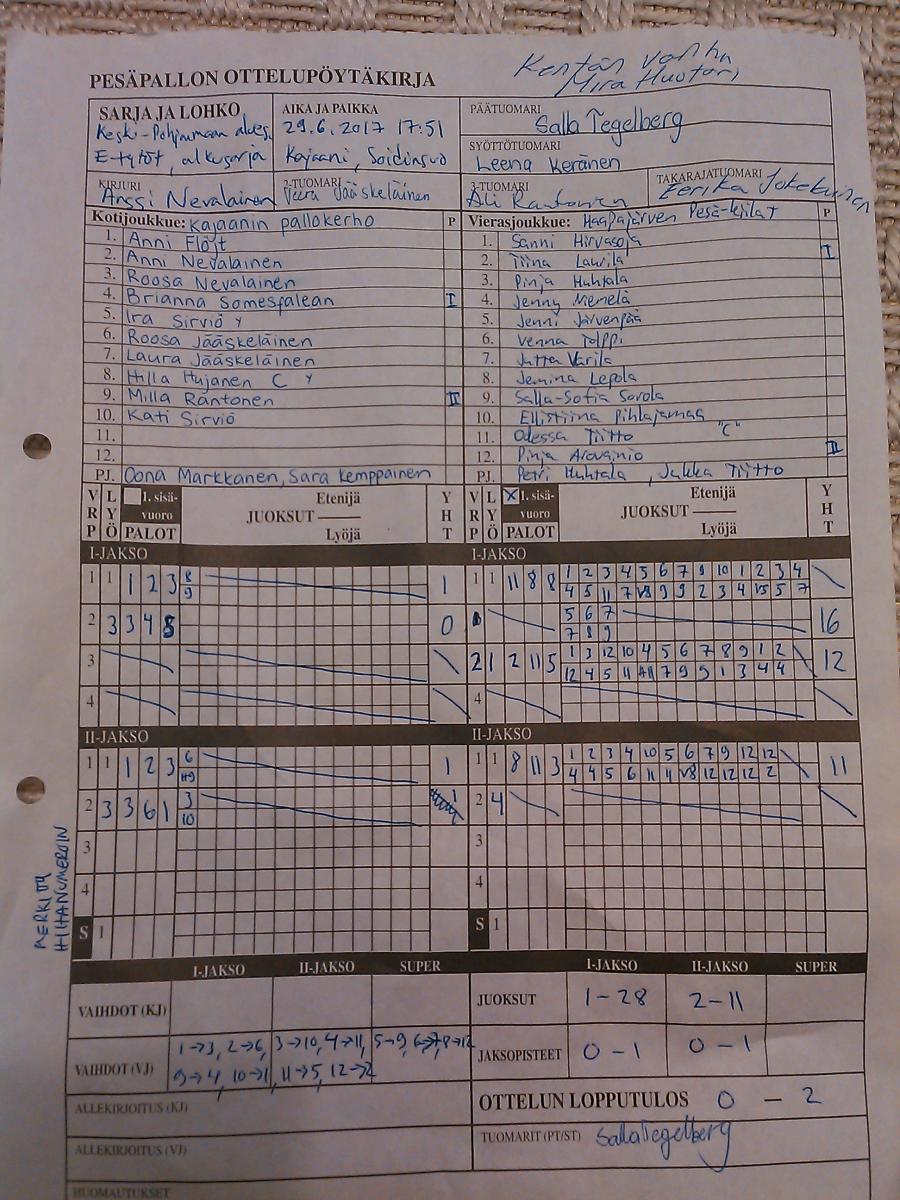 Kentän vanhu
Mira Huotari
PESÄPALLON OTTELUPÖYTÄKIRJA
SARJA JA LOHKO
Keski-Pohjanmaan
E-tytöt, alkusarja
AIKA JA PAIKKA
29.6.2017 17:51
Kajaani,
PÄÄTUOMARI
Salla Tegelberg
SYÖTTÖTUOMARI
Leena Keränen
KIRJURI
Anssi Nevalainen
2-TUOMARI
Veera Jääskeläinen
3-TUOMARI
TAKARAJATUOMARI
Eerika
Kotijoukkue: Kajaanin pallokerho P
1. Anni
2. Anni Nevalainen
3. Roosa Nevalainen
4. Brianna Somesfalean I
5. Ira Sirviö Y
6. Roosa Jääskeläinen
7. Laura Jääskeläinen
8. Hilla Hujanen C Y
9. Milla Rantonen II
10. Kati Sirviö
11.
12.
PJ. Oona Markkanen, Sara Kemppainen
Vierasjoukkue: Haapajärven Pesä-kiilat P
1. Sanni Hirvasoja
2. Tiina Laurila I
3. Pinja Huhtala
4. Jenny Niemelä
5. Jenni Järvenpää
6. Venna Tolppi
7. Jutta Varila
8. Jemina Lepola
9. Salla-Sofia Sorola
10. Ellistiina Pihlajamaa
11. Odessa Tiitto "C"
12. Pinja II
PJ. Petri Huhtala, Jukka Tiitto
VRP LYÖ 1. sisä-vuoro PALOT
Etenijä
JUOKSUT
Lyöjä
YHT
VRP LYÖ X 1. sisä-vuoro PALOT
Etenijä
JUOKSUT
Lyöjä
YHT
I-JAKSO
1 1 1 2 3 8 1
9
2 3 3 4 8 0
3
4
I-JAKSO
1 1 11 8 8 1 2 3 4 5 6 7 9 10 1 2 3 4
4 5 11 7 9 9 2 3 4 5 7
5 6 7 16
7 8 9
2 1 2 11 5 1 3 12 10 4 5 6 7 8 9 1 2 12
12 4 5 11 7 9 9 1 3 4 4
4
II-JAKSO
1 1 1 2 3 6 1
2 3 3 6 1 3 1
10
3
4
S 1
II-JAKSO
1 1 8 11 3 1 2 3 4 10 5 6 7 9 12 12 11
4 4 5 6 11 12 12 12 2
2 4
3
4
S 1
MERKITTY
HIHANUMEROIN
I-JAKSO II-JAKSO SUPER
VAIHDOT (KJ)
VAIHDOT (VJ)
1→3, 2→6, 3→10, 4→11, 5→9, 6→7, 8→12
9→4, 10→1, 11→5, 12→2
ALLEKIRJOITUS (KJ)
ALLEKIRJOITUS (VJ)
HUOMAUTUKSET
I-JAKSO II-JAKSO SUPER
JUOKSUT 1-28 2-11
JAKSOPISTEET 0-1 0-1
OTTELUN LOPPUTULOS 0 - 2
TUOMARIT (PT/ST) Salla Tegelberg